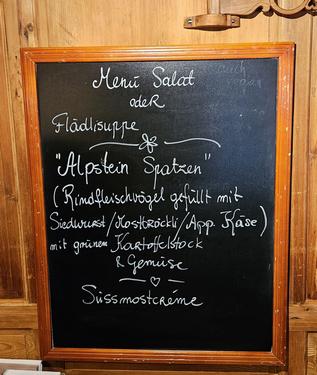 Menü Salat
oder
Flädlisuppe
"Alpstein Spatzen"
(Rindfleischvögel gefüllt mit
Siedwurst/Mostbröckli/App. Käse)
mit grünem Kartoffelstock
& Gemüse
Süssmostcréme